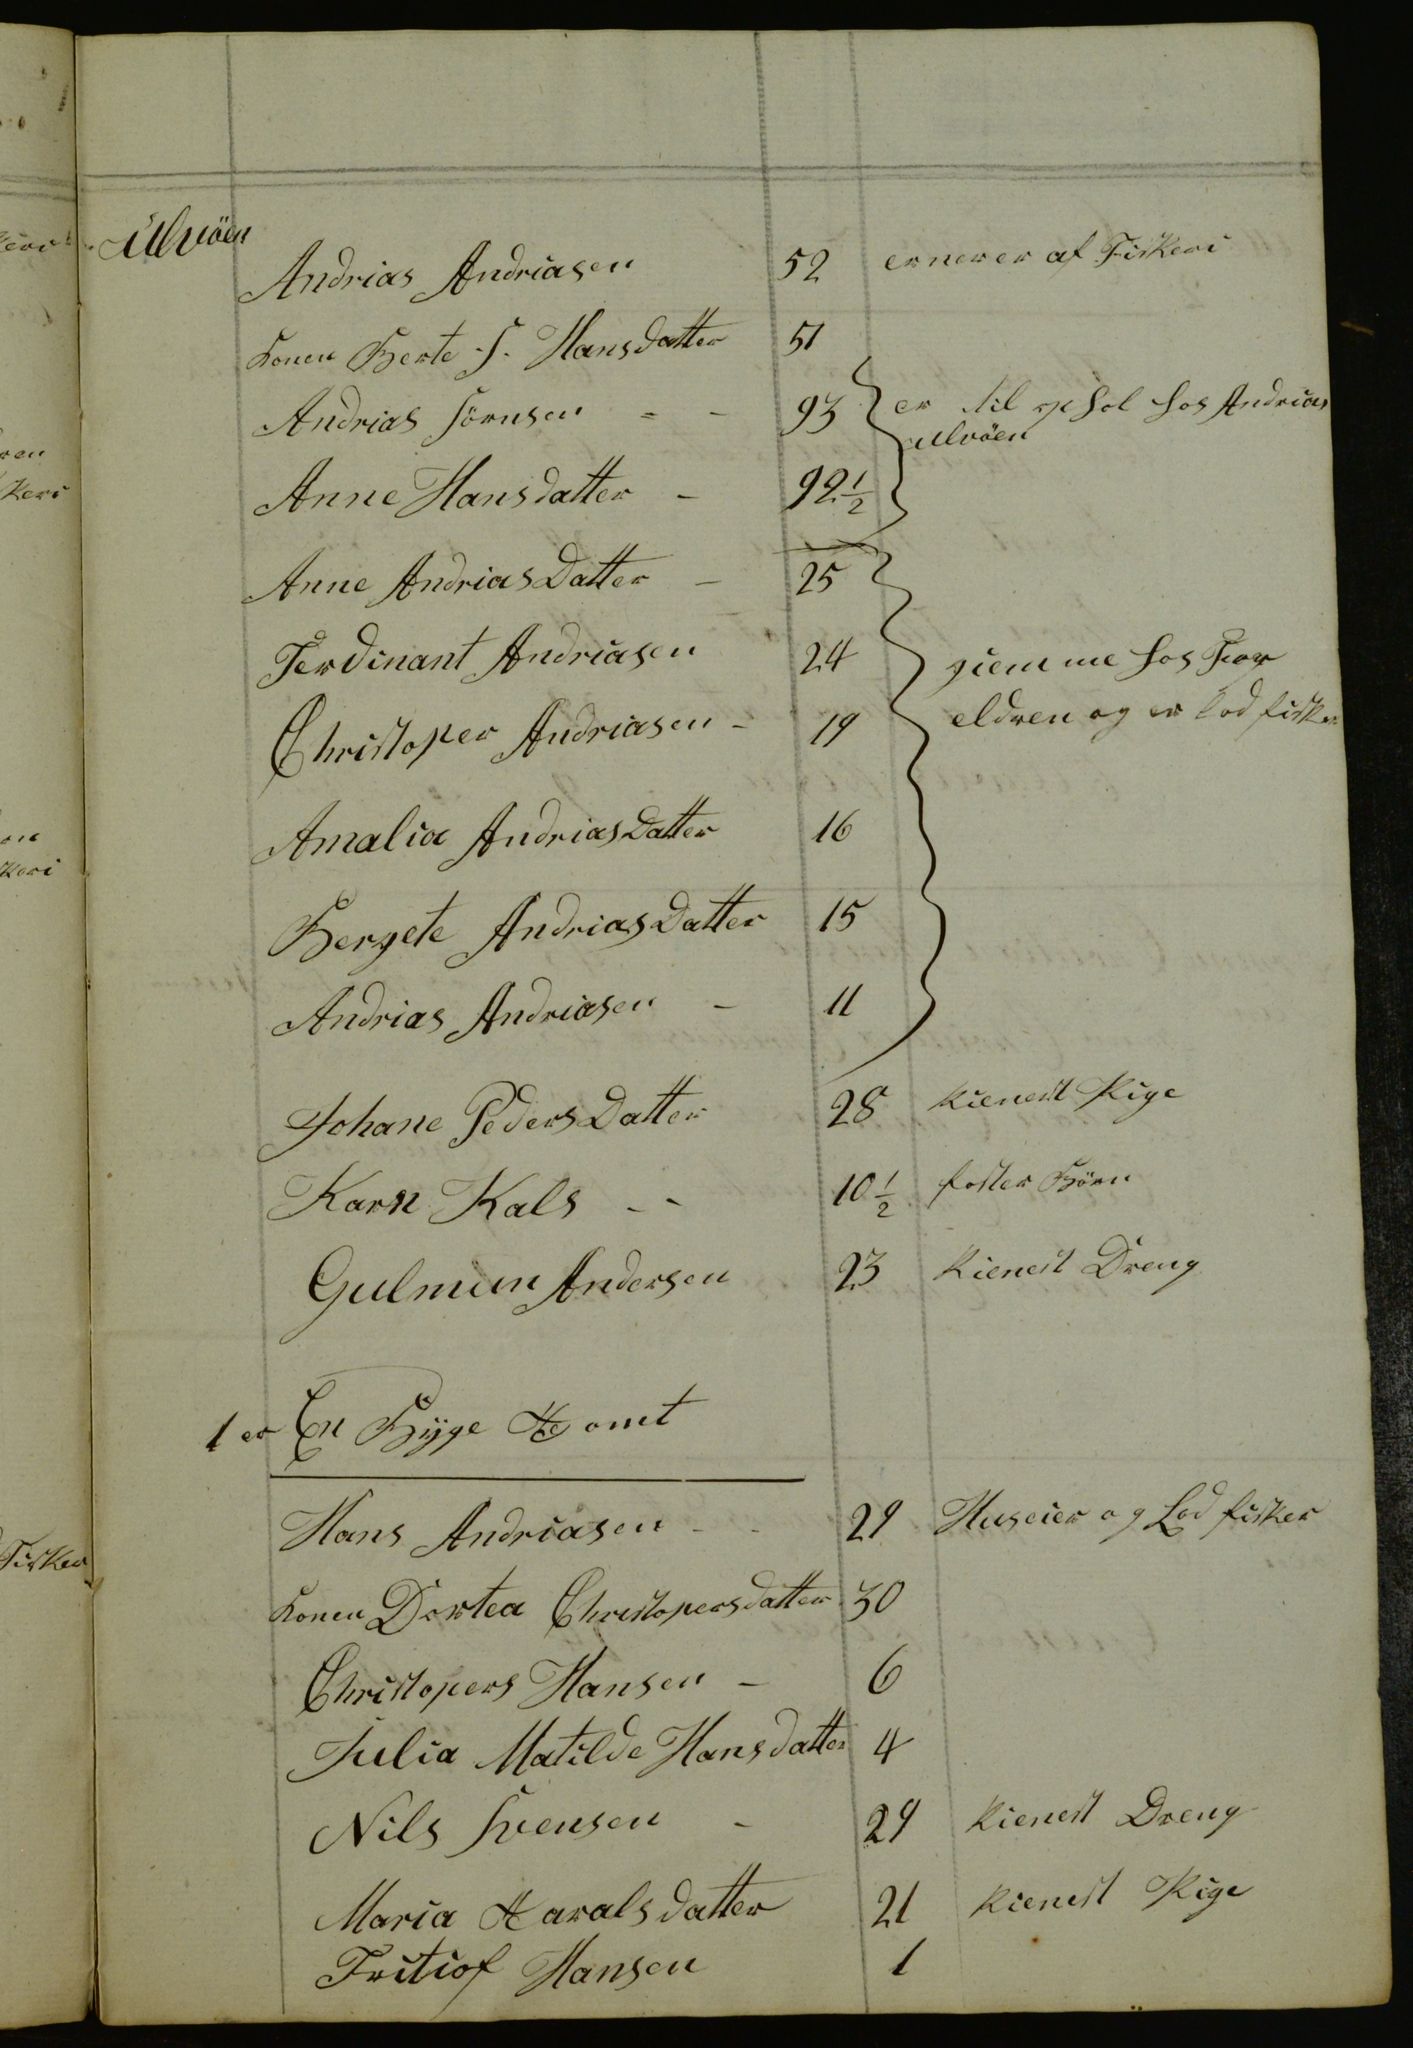 Ulvöen
Andrias Andriasen 52 ernerer af Fiskeri
konen Berte S. Hansdatter 51
Andrias Sörnsen = - 93 er til ophol hos Andrias
Ulvöen
Anne Hansdatter - 92 1/2
Anne AndriasDatter - 25
Ferdinant Andriasen 24 hiemme hos For
Christoper Andriasen - 19 eldren og er lod fisker
Amalia AndriasDatter 16
Bergete AndriasDatter 15
Andrias Andriasen - 11
Johane PedersDatter 28 kienest Pige
Karn Kals - - 10 1/2 foster Börn
Gulmun Andersen 23 kienest Dreng
1 er En Byge Homt
Hans Andriasen - - 29 Huseier og Lod fisker
konen Dortea Christopersdatter 30
Christopers Hansen - 6
Julia Matilde Hansdatter 4
Nils Svensen - 29 kienest Dreng
Maria Haralsdatter 21 kienest Pige
Fritiof Hansen 1